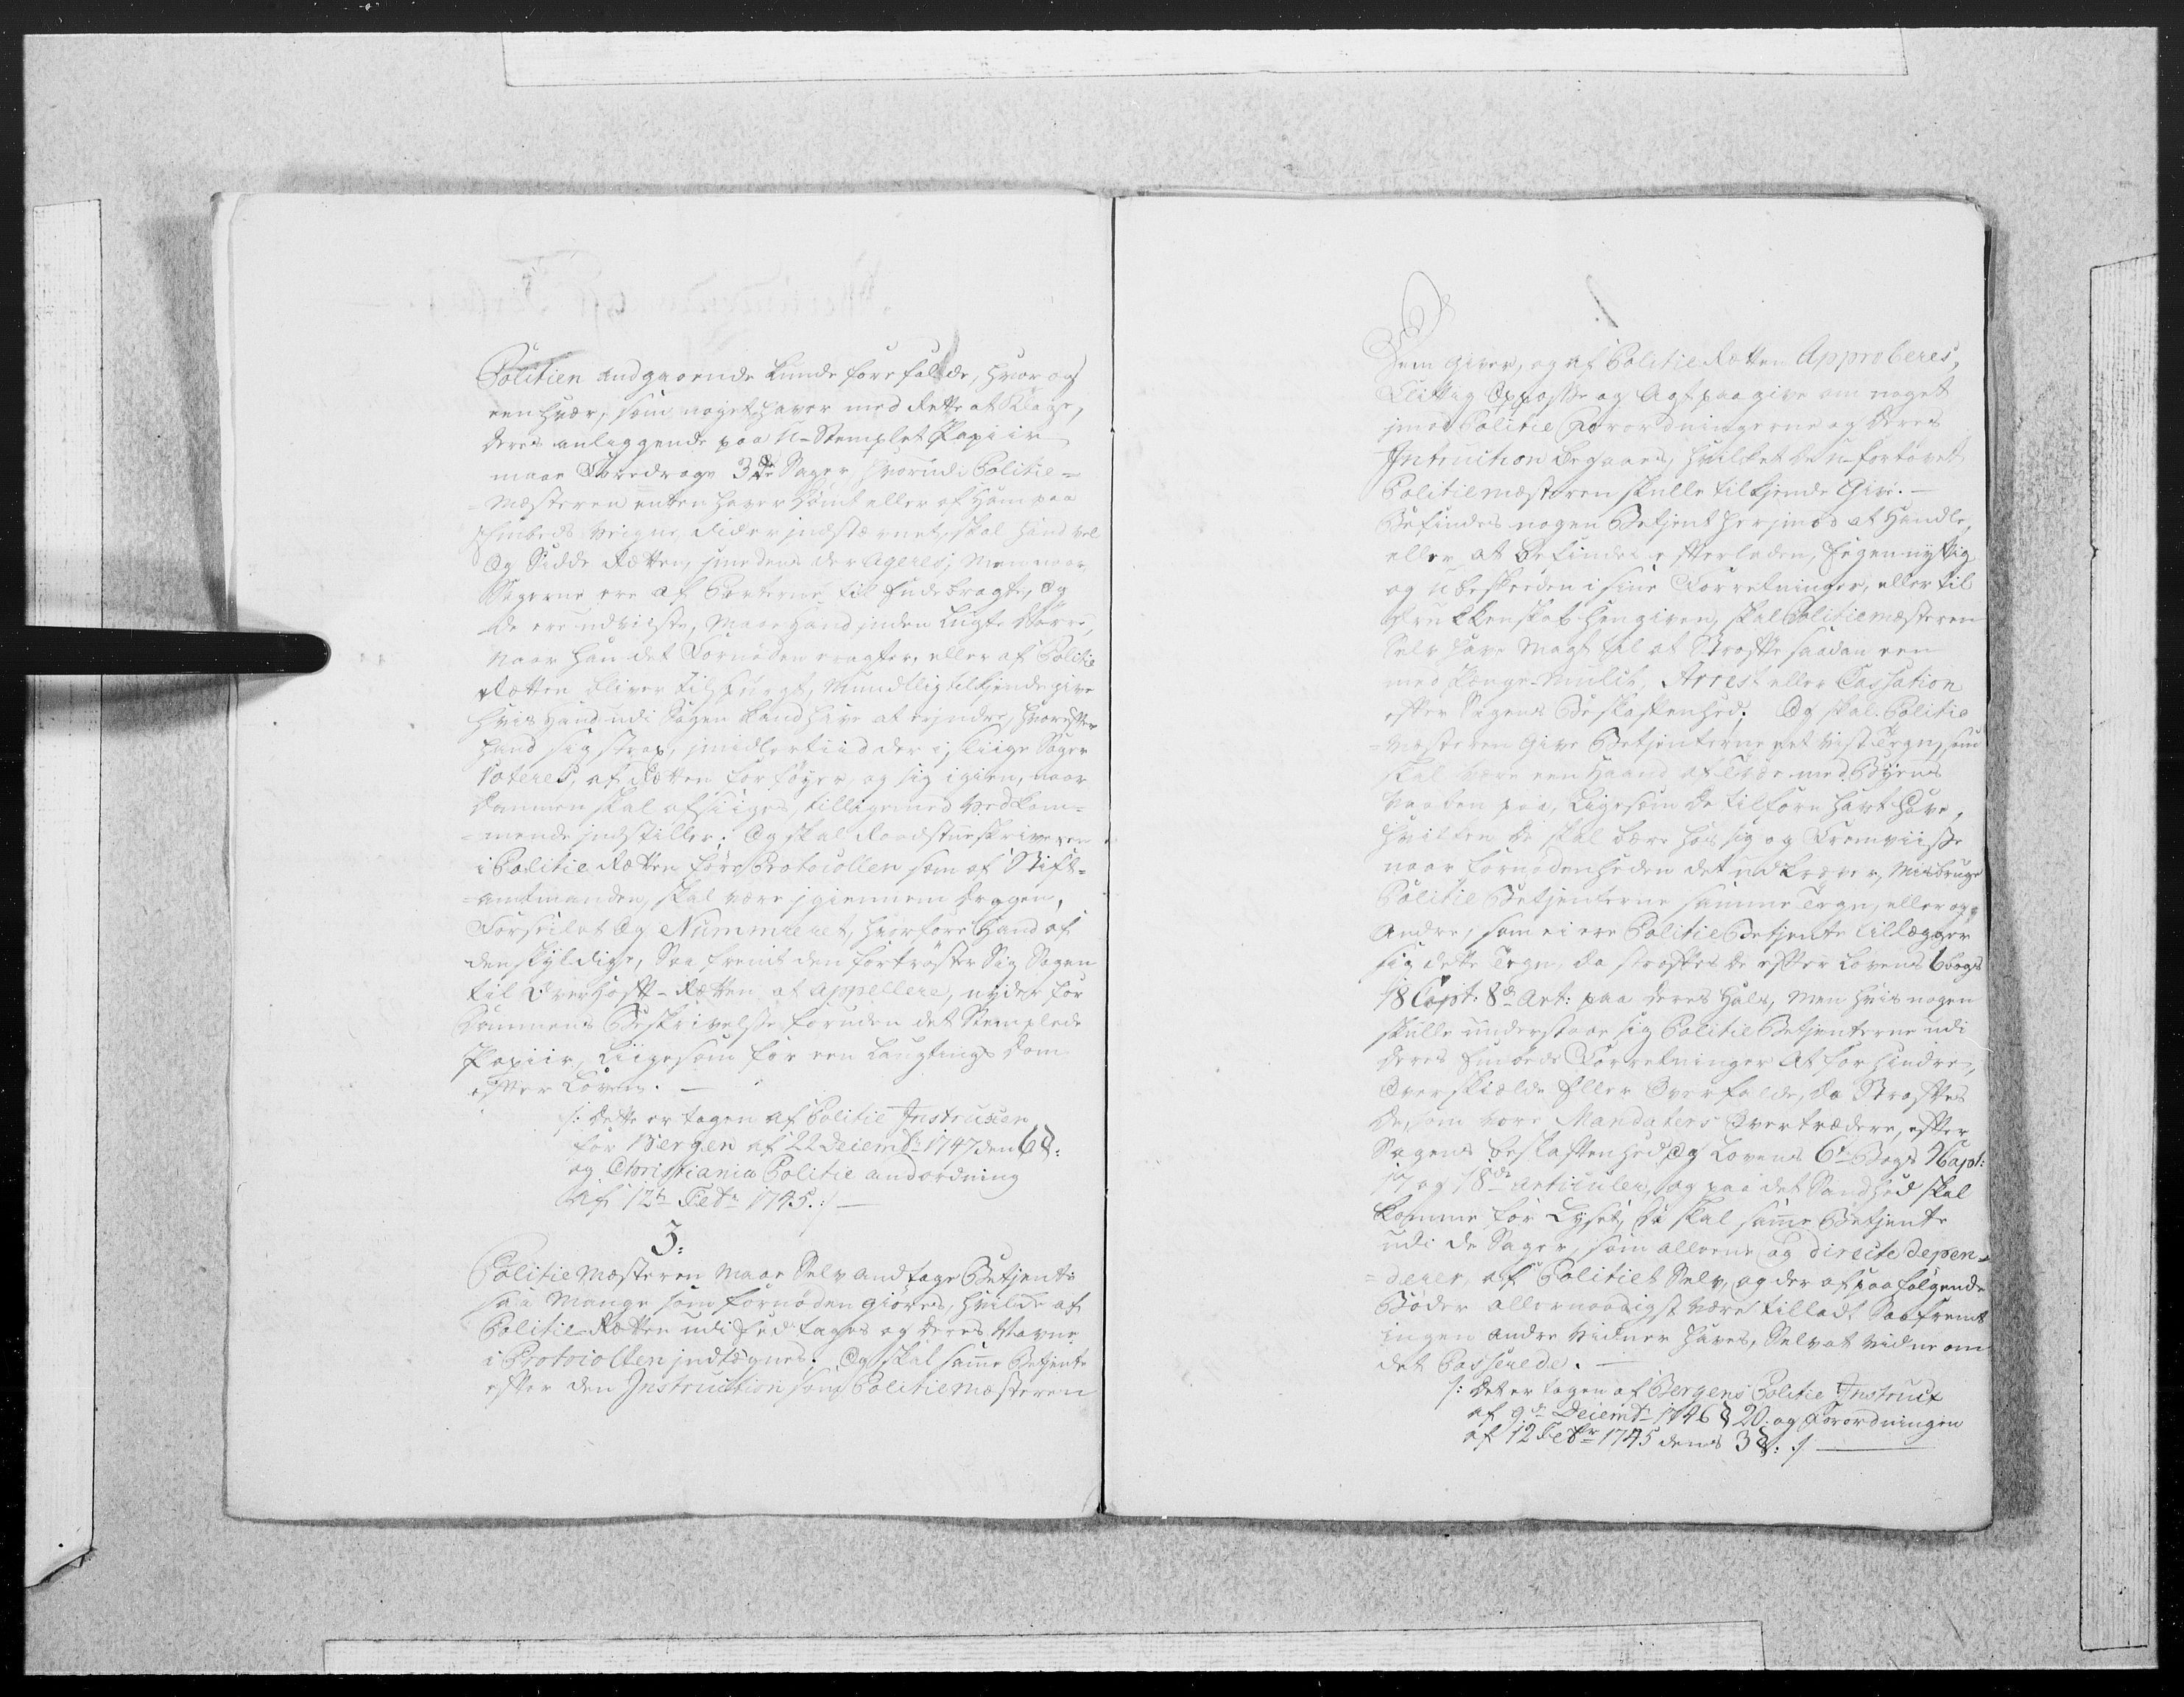 Politien andgaaende kunde forefalde, hvor og
een hver, som noget haver med Rette at Klage,
deres anliggende paa U-Stemplet Papiir
maae Foredrage 3de Sager hvorudi Politie-
Mæsteren enten haver dømt eller af Ham paa
Embeds veigne lader indstævnet, skal Hand vel
Og Sidde Retten, imedens der Ageres; Men naar
Sagerne ere af Parterne til Ende bragte, og
de ere udviiste, Maae Hand inden lugte Dørre,
Naar Han det Fornøden eragter, eller af Politie
Retten bliver tilspurgt, Mundtlig tilkiende give
hvis Hand udi Sagen kand have at erindre, hvorefter
Hand sig strax, imidlertiid der i sliige Sager
Voteres, af Retten forføyer, og sig igien, naar
Dommen skal afsiiges, tilligemed Vedkom-
mende indstiller; Og skal Raadstueskriveren
i Politie Retten føre Protocollen som af Stift-
amtmanden, skal være igiennem dragen,
Forseilet Og Nummereret, hvorfore Hand af
den skyldige, Saa fremt den fortrøster Sig Sagen
til Overhoff-Retten at Appellere, nyder for
Dommens Beskrivelse foruden det Stemplede
Papiir, Liigesom for een Laugtings dom
efter Loven. —
/: Dette er tagen af Politie Instruxen
for Bergen af 22 Decembr 1747 dens 6 §:
og Christiania Politie andordning
Af 12te Febr 1745. :/ —
3:
Politie Mæsteren Maae Selv andtage Betjente
saa Mange som fornøden giøres, hvilke af
Politie-Retten udi Eed tages og deres Navne
i Protocollen indtegnes; Og skal samme Betjente
efter den Instruction som Politie Mæsteren
dem giver, og af Politie Retten Approberes,
Flittig Oppasse og Agt paa give om noget
imod Politie Forordningerne og deres
Intruction Begaaes, hvilket de U-fortøvet
Politiemæsteren skulle tilkiende Give. —
Befindes nogen Betjent herimod at Handle,
eller at Befindes efterladen, Eegennyttig
og Ubeskeeden i sine Forretninger, eller til
Drukkenskab Hengiven, skal Politiemæsteren
Selv Have Magt til at Straffe saadan een
med Penge-Mulct, Arrest eller Cassation
efter Sagens Beskaffenhed. Og skal Politie
Mæsteren Give Betjenterne et vist Tegn, som
skal være een Haand af Træe med Byens
Vaaben paa, Ligesom de tilforn havt Have,
hvilken de skal bære hos sig og Fremviise
naar fornødenheden det udkræver, Misbruge
Politie Betjenterne samme Tegn, eller og
Andre, som ei ere Politie Betjente tillægger
sig dette Tegn, da straffes de efter Lovens 6 bogs
18 Capt: 8de Art: paa deres Hals, Men hvis nogen
skulle understaae sig Politie Betjenterne udi
deres Embeds Forretninger At forhindre,
Overskielde Eller Overfalde, da Straffes
de, som vore Mandaters Overtrædere, efter
Sagens beskaffenhed, Og Lovens 6te Bogs Capt:
17 og 18de Articuler, og paa det Sandhed skal
komme for Lyset, Saa skal samme Betjente
udi de Sager, som alleene og directe depen-
derer, af Politiet Selv, og der af paafølgende
Bøder allernaadigst være tilladt, Saafremt
ingen andre Vidner haves, Selv at Vidne om
det Passerede. —
/: Det er tagen af Bergens Politie Instruct
af 9de Decembr 1746 § 20: og Forordningen
af 12 Febr 1745 dens 3 §: :/ —